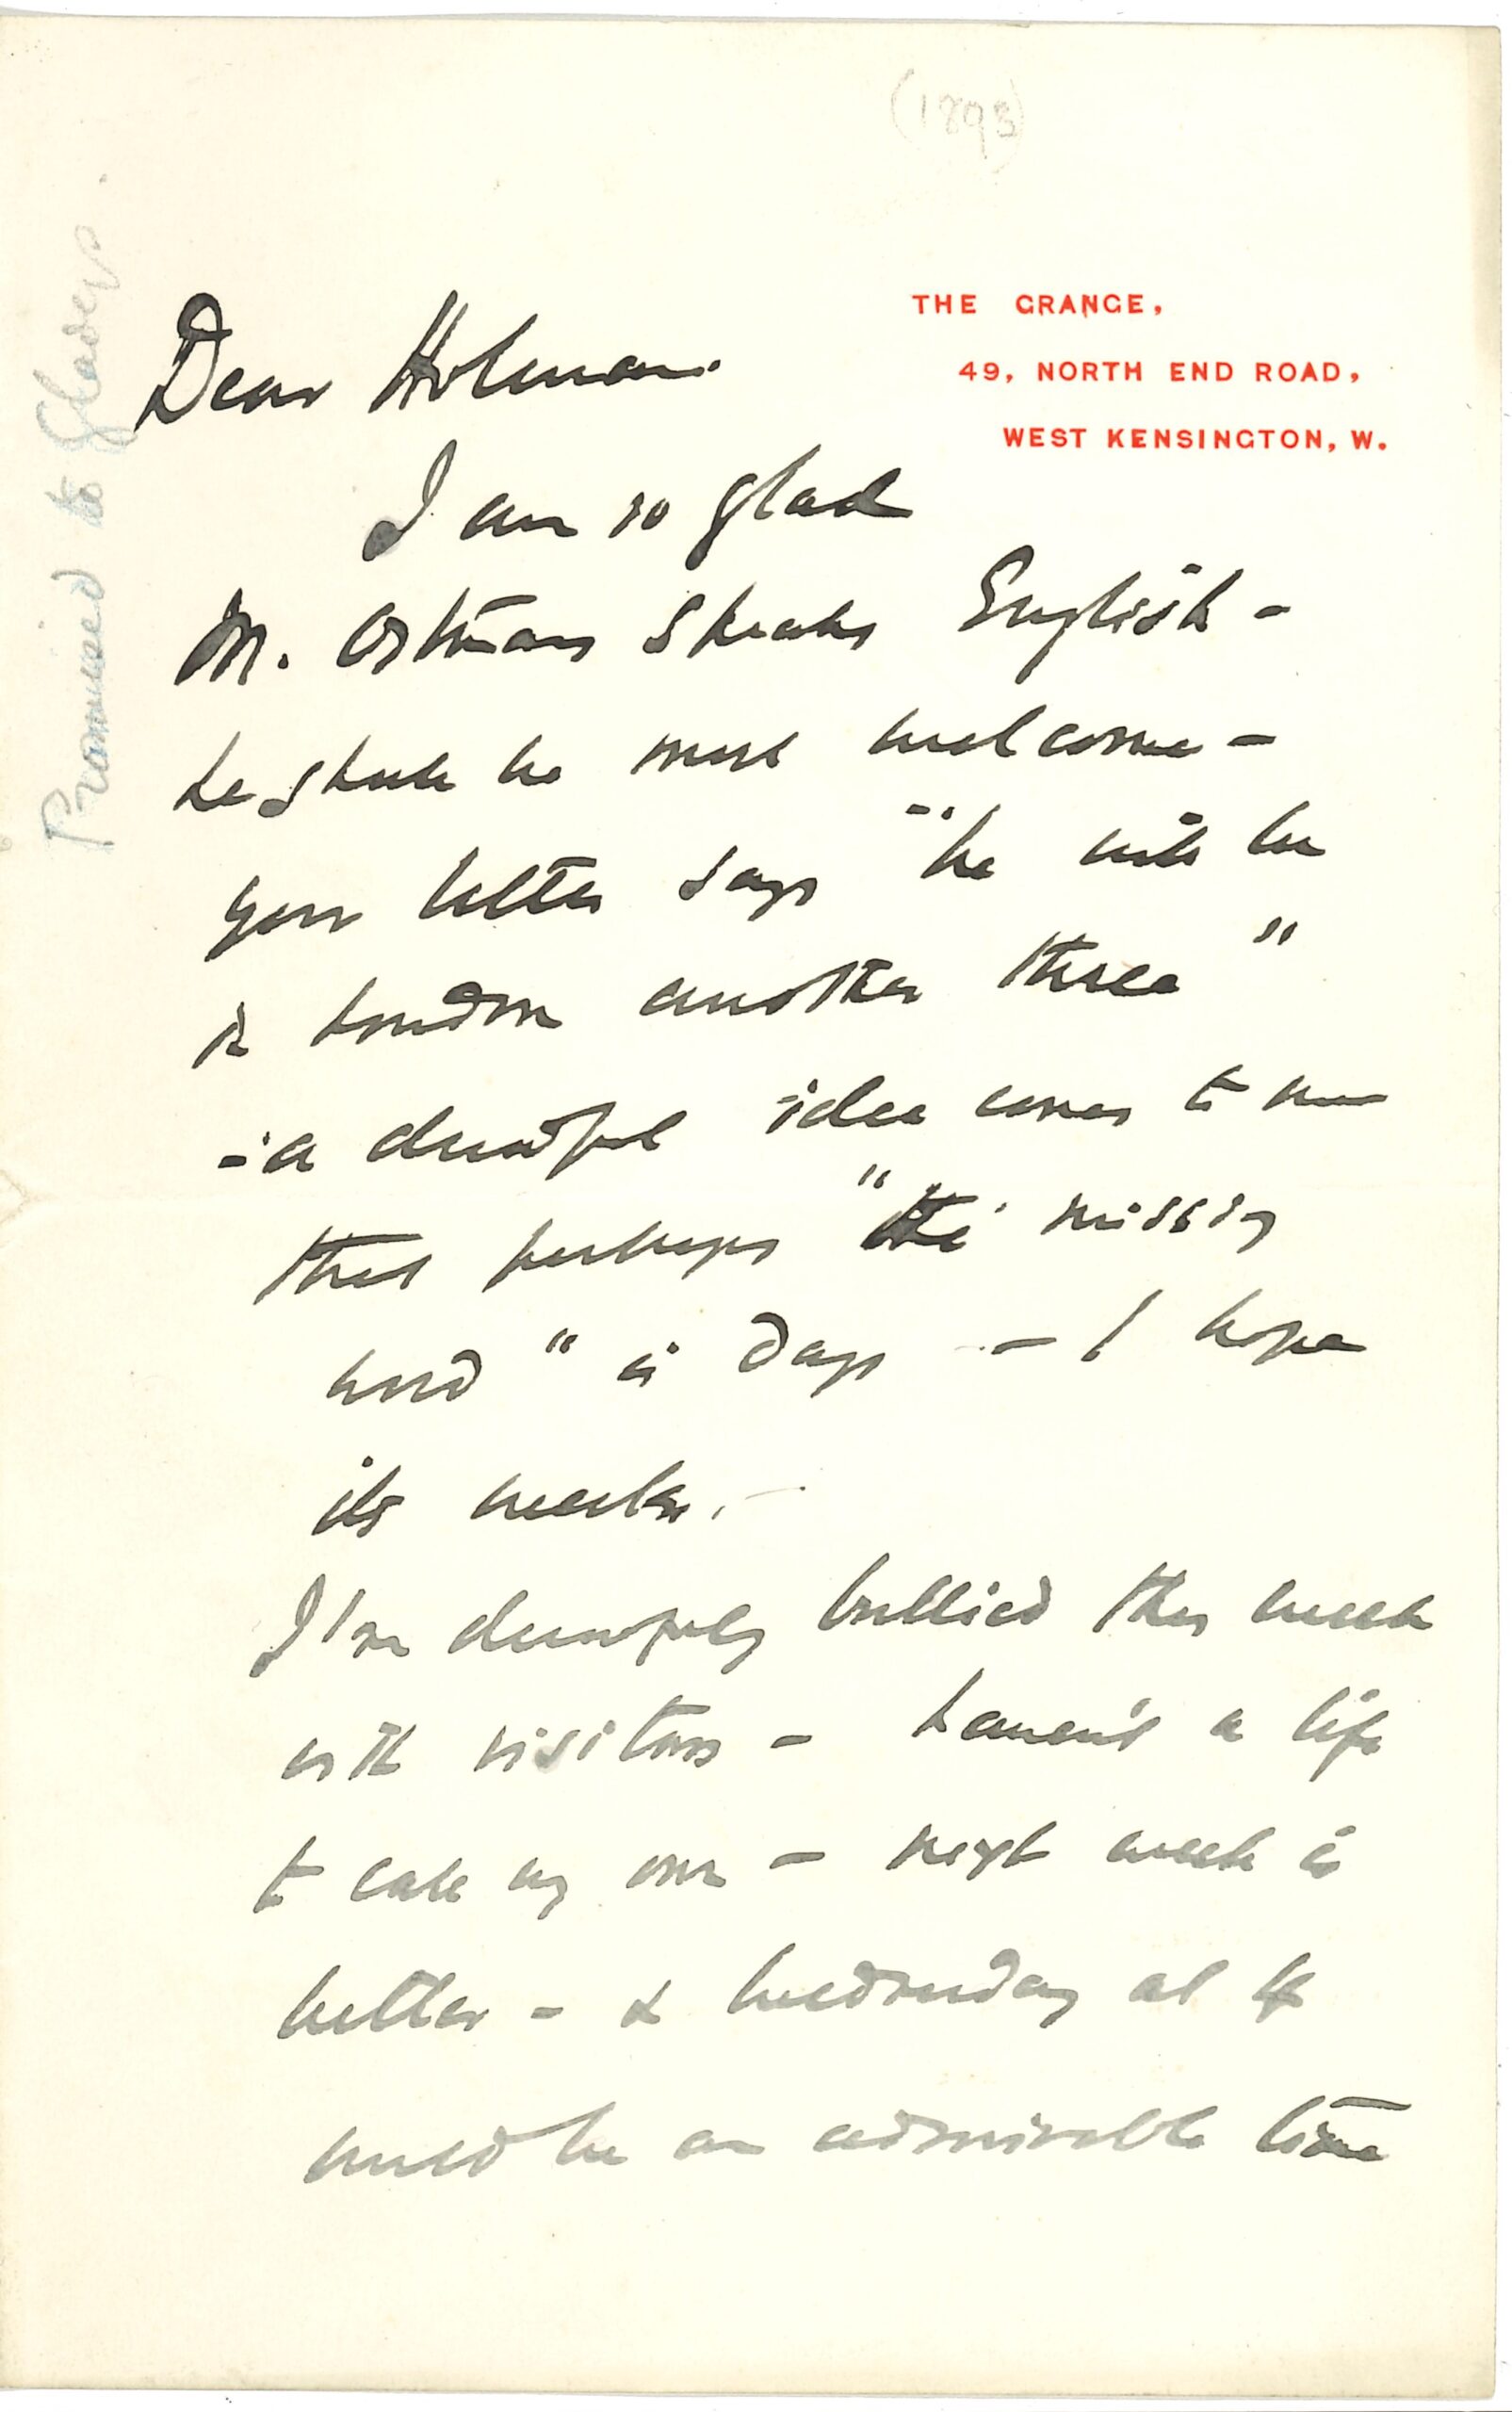 (1893)
THE GRANGE,
49, NORTH END ROAD,
WEST KENSINGTON, W.
Promised to Gladys.
Dear Holman.
I am so glad
M. speaks English -
he shall be most welcome -
your letter says "he will be
in London another three"
- a dreadful idea comes to me
that perhaps "the missing
word" is days - I hope
its weeks. -
I'm dreadfully bullied this week
with visitors - haven't a life
to call my own - next week is
better - & Wednesday at 4
would be an admirable time